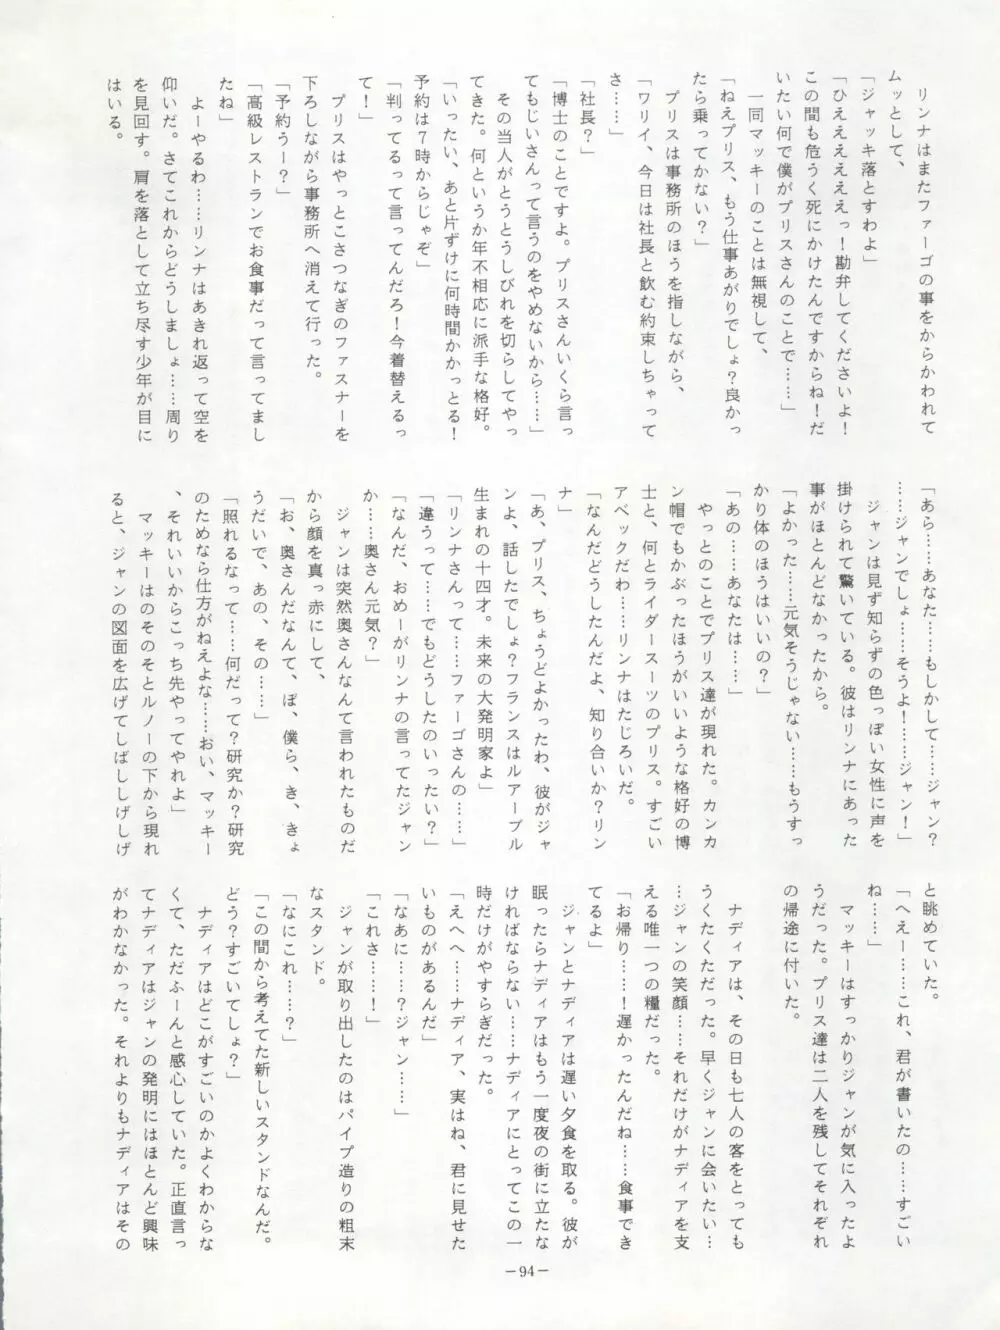 リンナはまたファーゴの事をからかわれて
ムッとして、
「ジャッキ落とすわよ」
「ひええええええっ！勘弁してくださいよ！
この間も危うく死にかけたんですからね！だ
いたい何で僕がプリスさんのことで……」
一同マッキーのことは無視して、
「ねえプリス、もう仕事あがりでしょ？良かっ
たら乗ってかない？」
プリスは事務所のほうを指しながら、
「ワリイ、今日は社長と飲む約束しちゃって
さ……」
「社長？」
「博士のことですよ。プリスさんいくら言っ
てもじいさんって言うのをやめないから……」
その当人がとうとうしびれを切らしてやっ
てきた。何というか年不相応に派手な格好。
「いったい、あと片ずけに何時間かかっとる！
予約は７時からじゃぞ」
「判ってるって言ってんだろ！今着替えるっ
て！」
プリスはやっとこさつなぎのファスナーを
下ろしながら事務所へ消えて行った。
「予約うー？」
「高級レストランでお食事だって言ってまし
たね」
よーやるわ……リンナはあきれ返って空を
仰いだ。さてこれからどうしましょ……周り
を見回す。肩を落として立ち尽す少年が目に
はいる。
「あら……あなた……もしかして……ジャン？
……ジャンでしょ……そうよ！……ジャン！」
ジャンは見ず知らずの色っぽい女性に声を
掛けられて驚いている。彼はリンナにあった
事がほとんどなかったから。
「よかった……元気そうじゃない……もうすっ
かり体のほうはいいの？」
「あの……あなたは……」
やっとのことでプリス達が現れた。カンカ
ン帽でもかぶったほうがいいような格好の博
士と、何とライダースーツのプリス。すごい
アベックだわ……リンナはたじろいだ。
「なんだどうしたんだよ、知り合いか？リン
ナ」
「あ、プリス、ちょうどよかったわ、彼がジャ
ンよ、話したでしょ？フランスはルアーブル
生まれの十四才。未来の大発明家よ」
「リンナさんって……ファーゴさんの……」
「違うって……でもどうしたのいったい？」
「なんだ、おめーがリンナの言ってたジャン
か……奥さん元気？」
ジャンは突然奥さんなんて言われたものだ
から顔を真っ赤にして、
「お、奥さんだなんて、ぼ、僕ら、き、きょ
うだいで、あの、その……」
「照れるなって……何だって？研究か？研究
のためなら仕方がねえよな……おい、マッキー
、それいいからこっち先やってやれよ」
マッキーはのそのそとルノーの下から現れ
ると、ジャンの図面を広げてしばししげしげ
と眺めていた。
「へえー……これ、君が書いたの……すごい
ね……」
マッキーはすっかりジャンが気に入ったよ
うだった。プリス達は二人を残してそれぞれ
の帰途に付いた。
ナディアは、その日も七人の客をとっても
うくたくただった。早くジャンに会いたい…
…ジャンの笑顔……それだけがナディアを支
える唯一つの糧だった。
「お帰り……！遅かったんだね……食事でき
てるよ」
ジャンとナディアは遅い夕食を取る。彼が
眠ったらナディアはもう一度夜の街に立たな
ければならない……ナディアにとってこの一
時だけがやすらぎだった。
「えへへ……ナディア、実はね、君に見せた
いものがあるんだ」
「なあに……？ジャン……」
「これさ……！」
ジャンが取り出したのはパイプ造りの粗末
なスタンド。
「なにこれ……？」
「この間から考えてた新しいスタンドなんだ。
どう？すごいでしょ？」
ナディアはどこがすごいのかよくわからな
くて、ただふーんと感心していた。正直言っ
てナディアはジャンの発明にはほとんど興味
がわかなかった。それよりもナディアはその
－94－